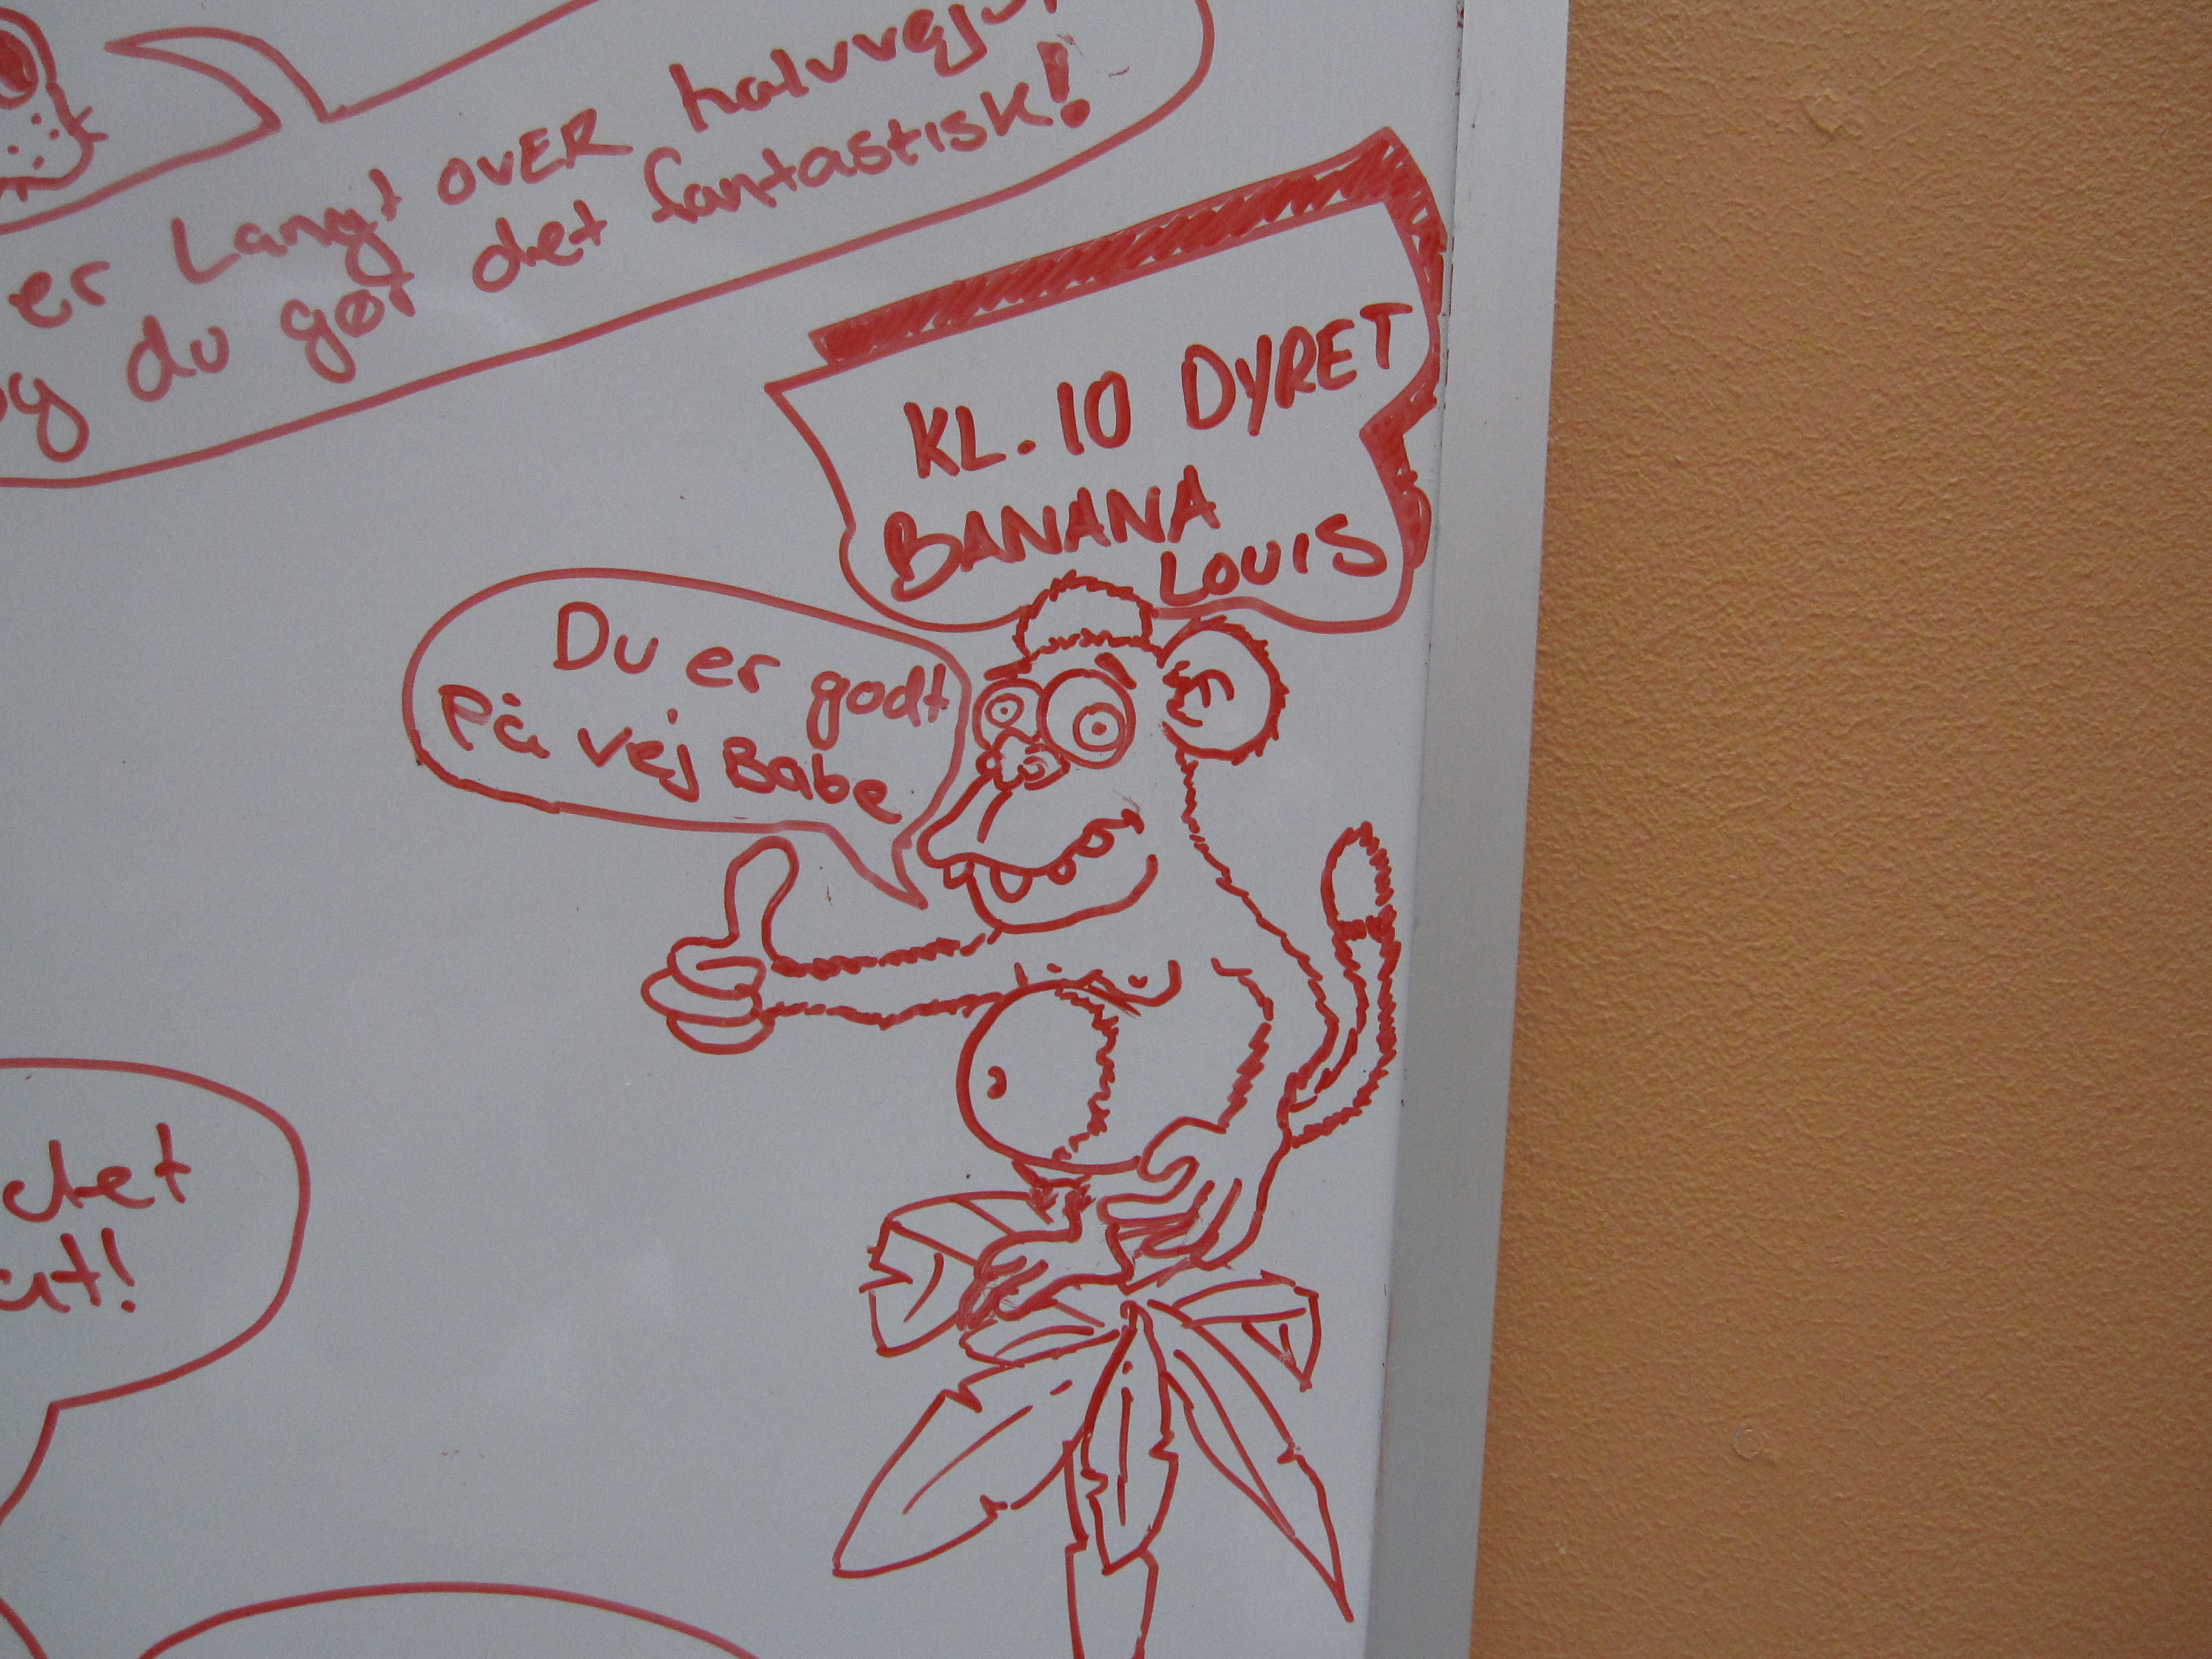 er Langt OVER halvvejs
og du gør det fantastisk!
KL. 10 DYRET
BANANA
LOUIS
Du er godt
På vej Babe
det